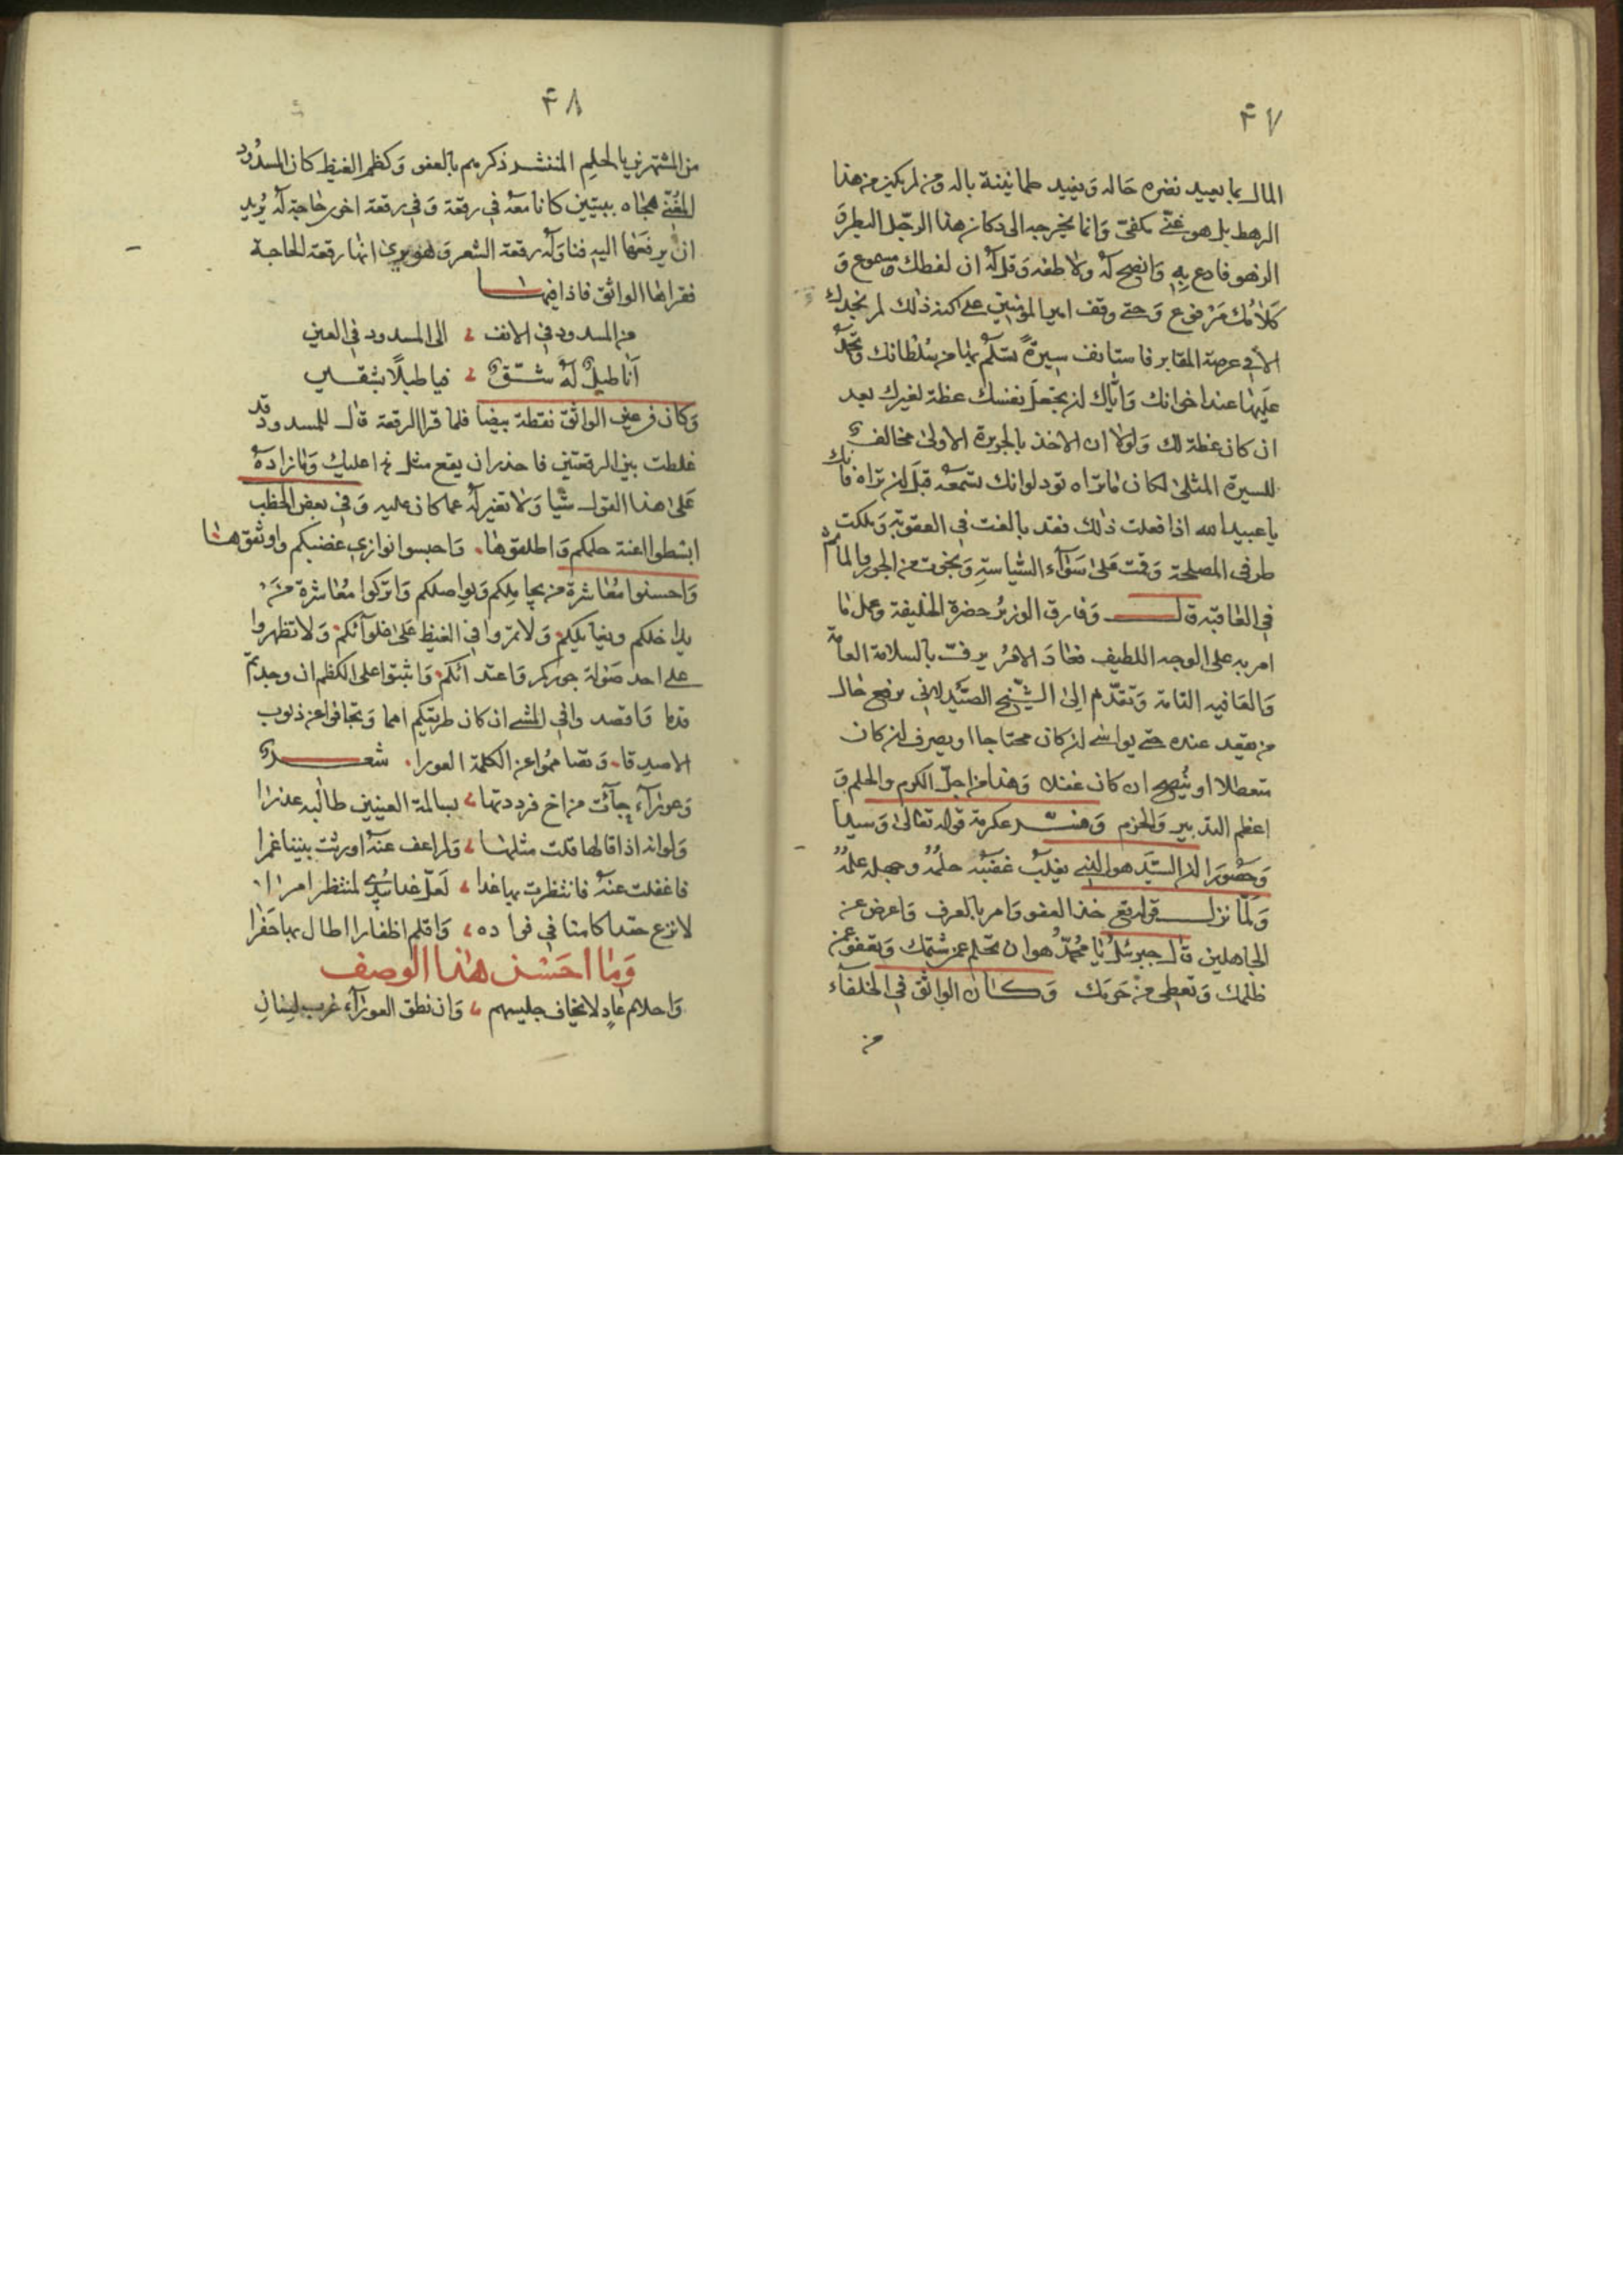 ٤٧
المال بما يعيد نضره حاله ويفيد طمانينة باله ومن لم يكن من هذا
الرهط بل هو غني مكفي وانما يخرجه الى دكان هذا الرجل البطر و
الزهو فادع به وانصح له ولاطفه وقل له ان لفظك مسموع و
كلامك مرفوع ومتى وقف امير المومنين على كنه ذلك لم نجدك
الا في عرصة المقابر فاستانف سيرة تسلم بها من سلطانك وتحمد
عليها عند اخوانك واياك ان تجعل نفسك عظة لغيرك بعد
ان كان عظة لك ولولا ان الاخذ بالجريرة الاولى مخالف
للسيرة المثلى لكان ما تراه تود لو انك تسمعه قبل ان تراه فانك
يا عبيد الله اذا فعلت ذلك فقد بالغت في العقوبة وملكت
طرفي المصلحة وقمت على سوآء السياسة ونجوت من الجور والماثم
في العاقبة قال وفارق الوزير حضرة الخليفة وعمل ما
امر به على الوجه اللطيف فعاد الامر يرف بالسلامة العامة
والعافيه التامة وتقدم الى الشيخ الصيدلاني برفع حال
من يقعد عنده حتى يواسى ان كان محتاجا او يصرف ان كان
متعطلا او ينصح ان كان غفلا وهذا من اجل الكرم والحلم و
اعظم التدبير والحزم وفسر عكرمة قوله تعالى وسيدا
وحصورا ان السيد هو الذي يغلب غضبه حلمه وجهله علمه
ولما نزل قوله تع خذ العفو وامر بالعرف واعرض عن
الجاهلين قال جبرئيل يا محمد هو ان تحلم عن شتمك وتعفو عمن
ظلمك وتعطي من حرمك وكان الواثق في الخلفاء
من
٤٨
من المشتهرين بالحلم المنتشر ذكرهم بالعفو وكظم الغيظ كان المسدود
المغني هجاه ببيتين كانا معه في رقعة وفي رقعة اخرى حاجة له يريد
ان يرفعها اليه فناوله رقعة الشعر وهو يرى انها رقعة الحاجة
فقراها الواثق فاذا فيها
من المسدود في الانف الى المسدود في العين
انا طبل له شق فيا طبلا بشقين
وكان في عين الواثق نقطة بيضا فلما قرا الرقعة قال للمسدود قد
غلطت بين الرقعتين فاحذر ان يقع مثل هذا عليك وما زاده
على هذا القول شيا ولا تغير له عما كان عليه وفي بعض الخطب
ابسطوا اعنة حلمكم واطلقوها واحبسوا نوازي غضبكم واوثقوها
واحسنوا معاشرة من يجاملكم ويواصلكم واتركوا معاشرة من
يداخلكم ولا تمروا في الغيظ على غلوائكم ولا تظهروا
على احد صولة جوركم واعتدائكم واثبتوا على الكظم ان وجدتم
قدما واقصدوا في المشي ان كان طريقكم امما وتجافوا عن ذنوب
الاصدقا وتصامموا عن الكلمة العورا شعر
وعورآء جآئت من اخ فرددتها بسالمة العينين طالبه عذرا
ولو انه اذا قالها قلت مثلها ولم اعف عنه اورثت بيننا غمرا
فاغفلت عنه فانتظرت به غدا لعل غدا يبدي لمنتظر امرا
لانزع حقدا كامنا في فواده واقلم اظفارا اطال بها حفرا
وما احسن هذا الوصف
واحلام عاد لا يخاف جليسهم وان نطق العورآء غرب لسان